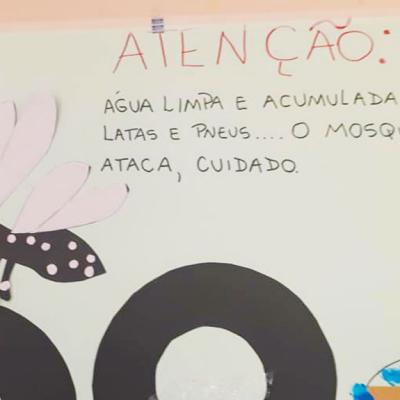 ATENÇÃO:
ÁGUA LIMPA E ACUMULADA
LATAS E PNEUS.... O MOSQU
ATACA, CUIDADO.